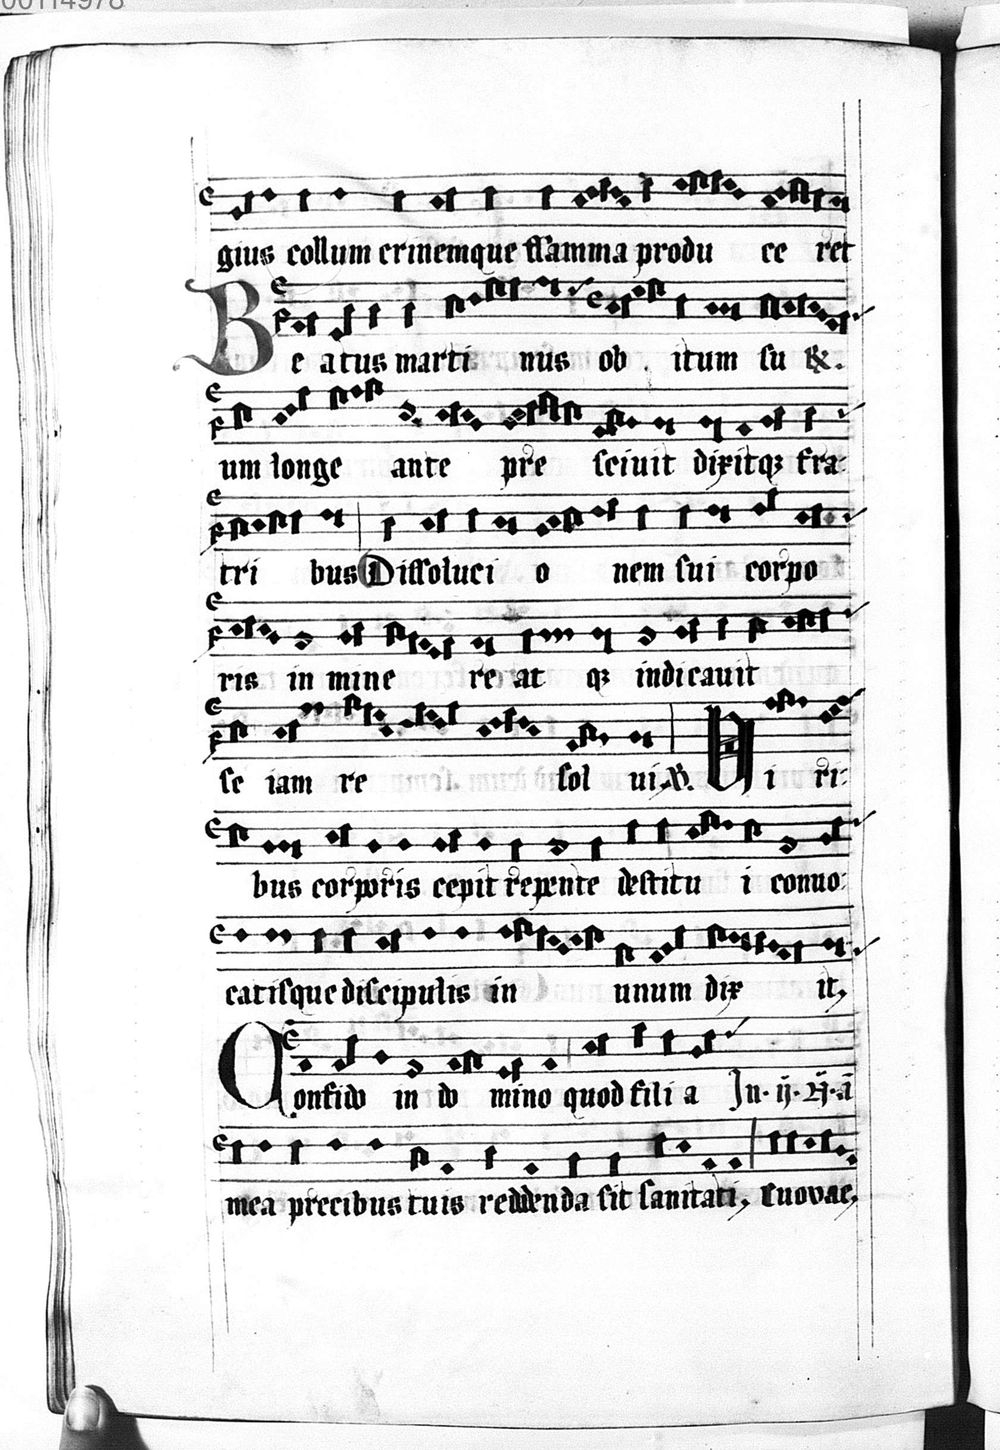 00114978
gius collum crinemque flamma produ ce ret
Be atus marti nus ob itum su R.
um longe ante pre sciuit dixitqꝫ fra
tri bus Dissoluci o nem sui corpo
ris in mine re at qꝫ indicauit
se iam re sol ui. V. Vi ri
bus corporis cepit repente destitu i conuo
catisque discipulis in unum dix it,
Confido in do mino quod fili a In. ij. N. a
mea precibus tuis reddenda sit sanitati, Euovae,